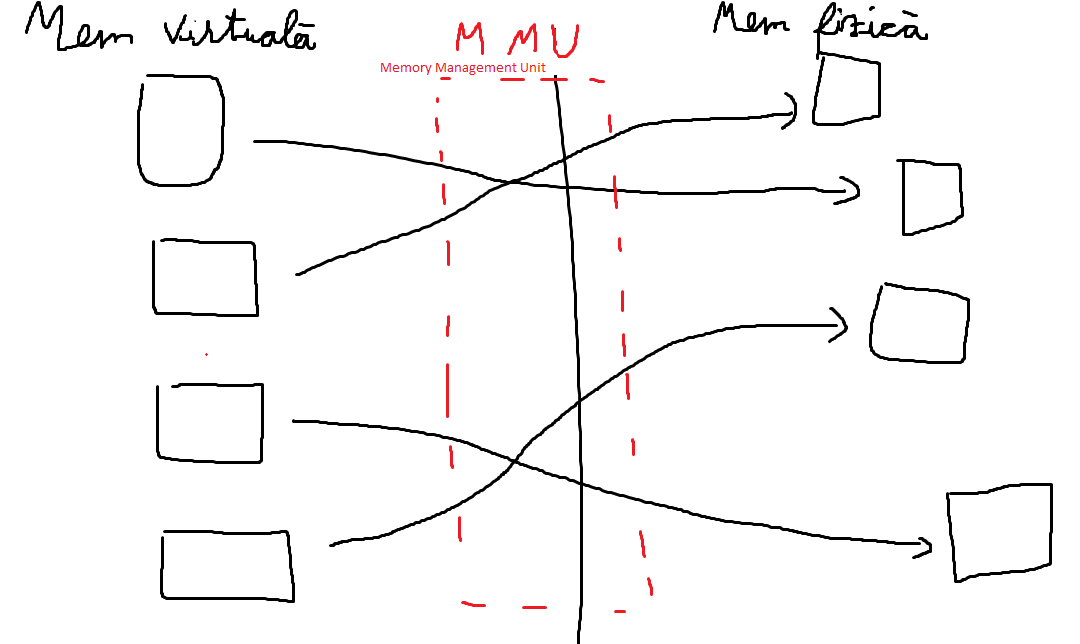 Mem virtuală
M M U
Memory Management Unit
Mem fizică